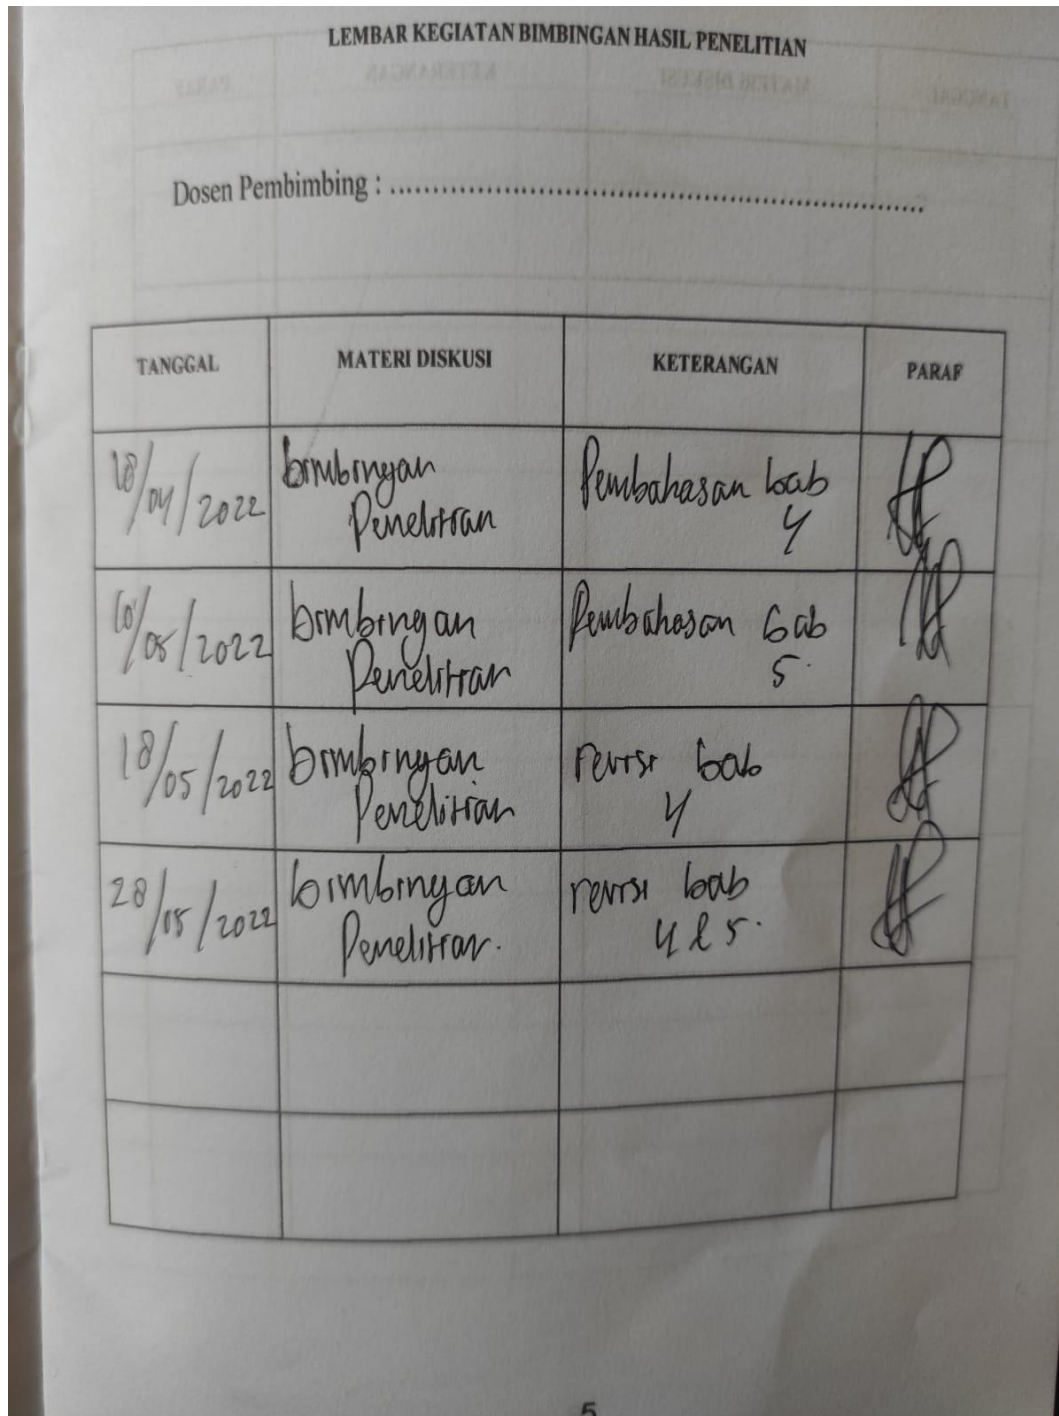 LEMBAR KEGIATAN BIMBINGAN HASIL PENELITIAN
Dosen Pembimbing : ................................................................
TANGGAL MATERI DISKUSI KETERANGAN PARAF
18/04/2022 bimbingan Penelitian Pembahasan bab 4
10/05/2022 bimbingan Penelitian Pembahasan bab 5.
18/05/2022 bimbingan Penelitian revisi bab 4
28/05/2022 bimbingan Penelitian. revisi bab 4 & 5.
5